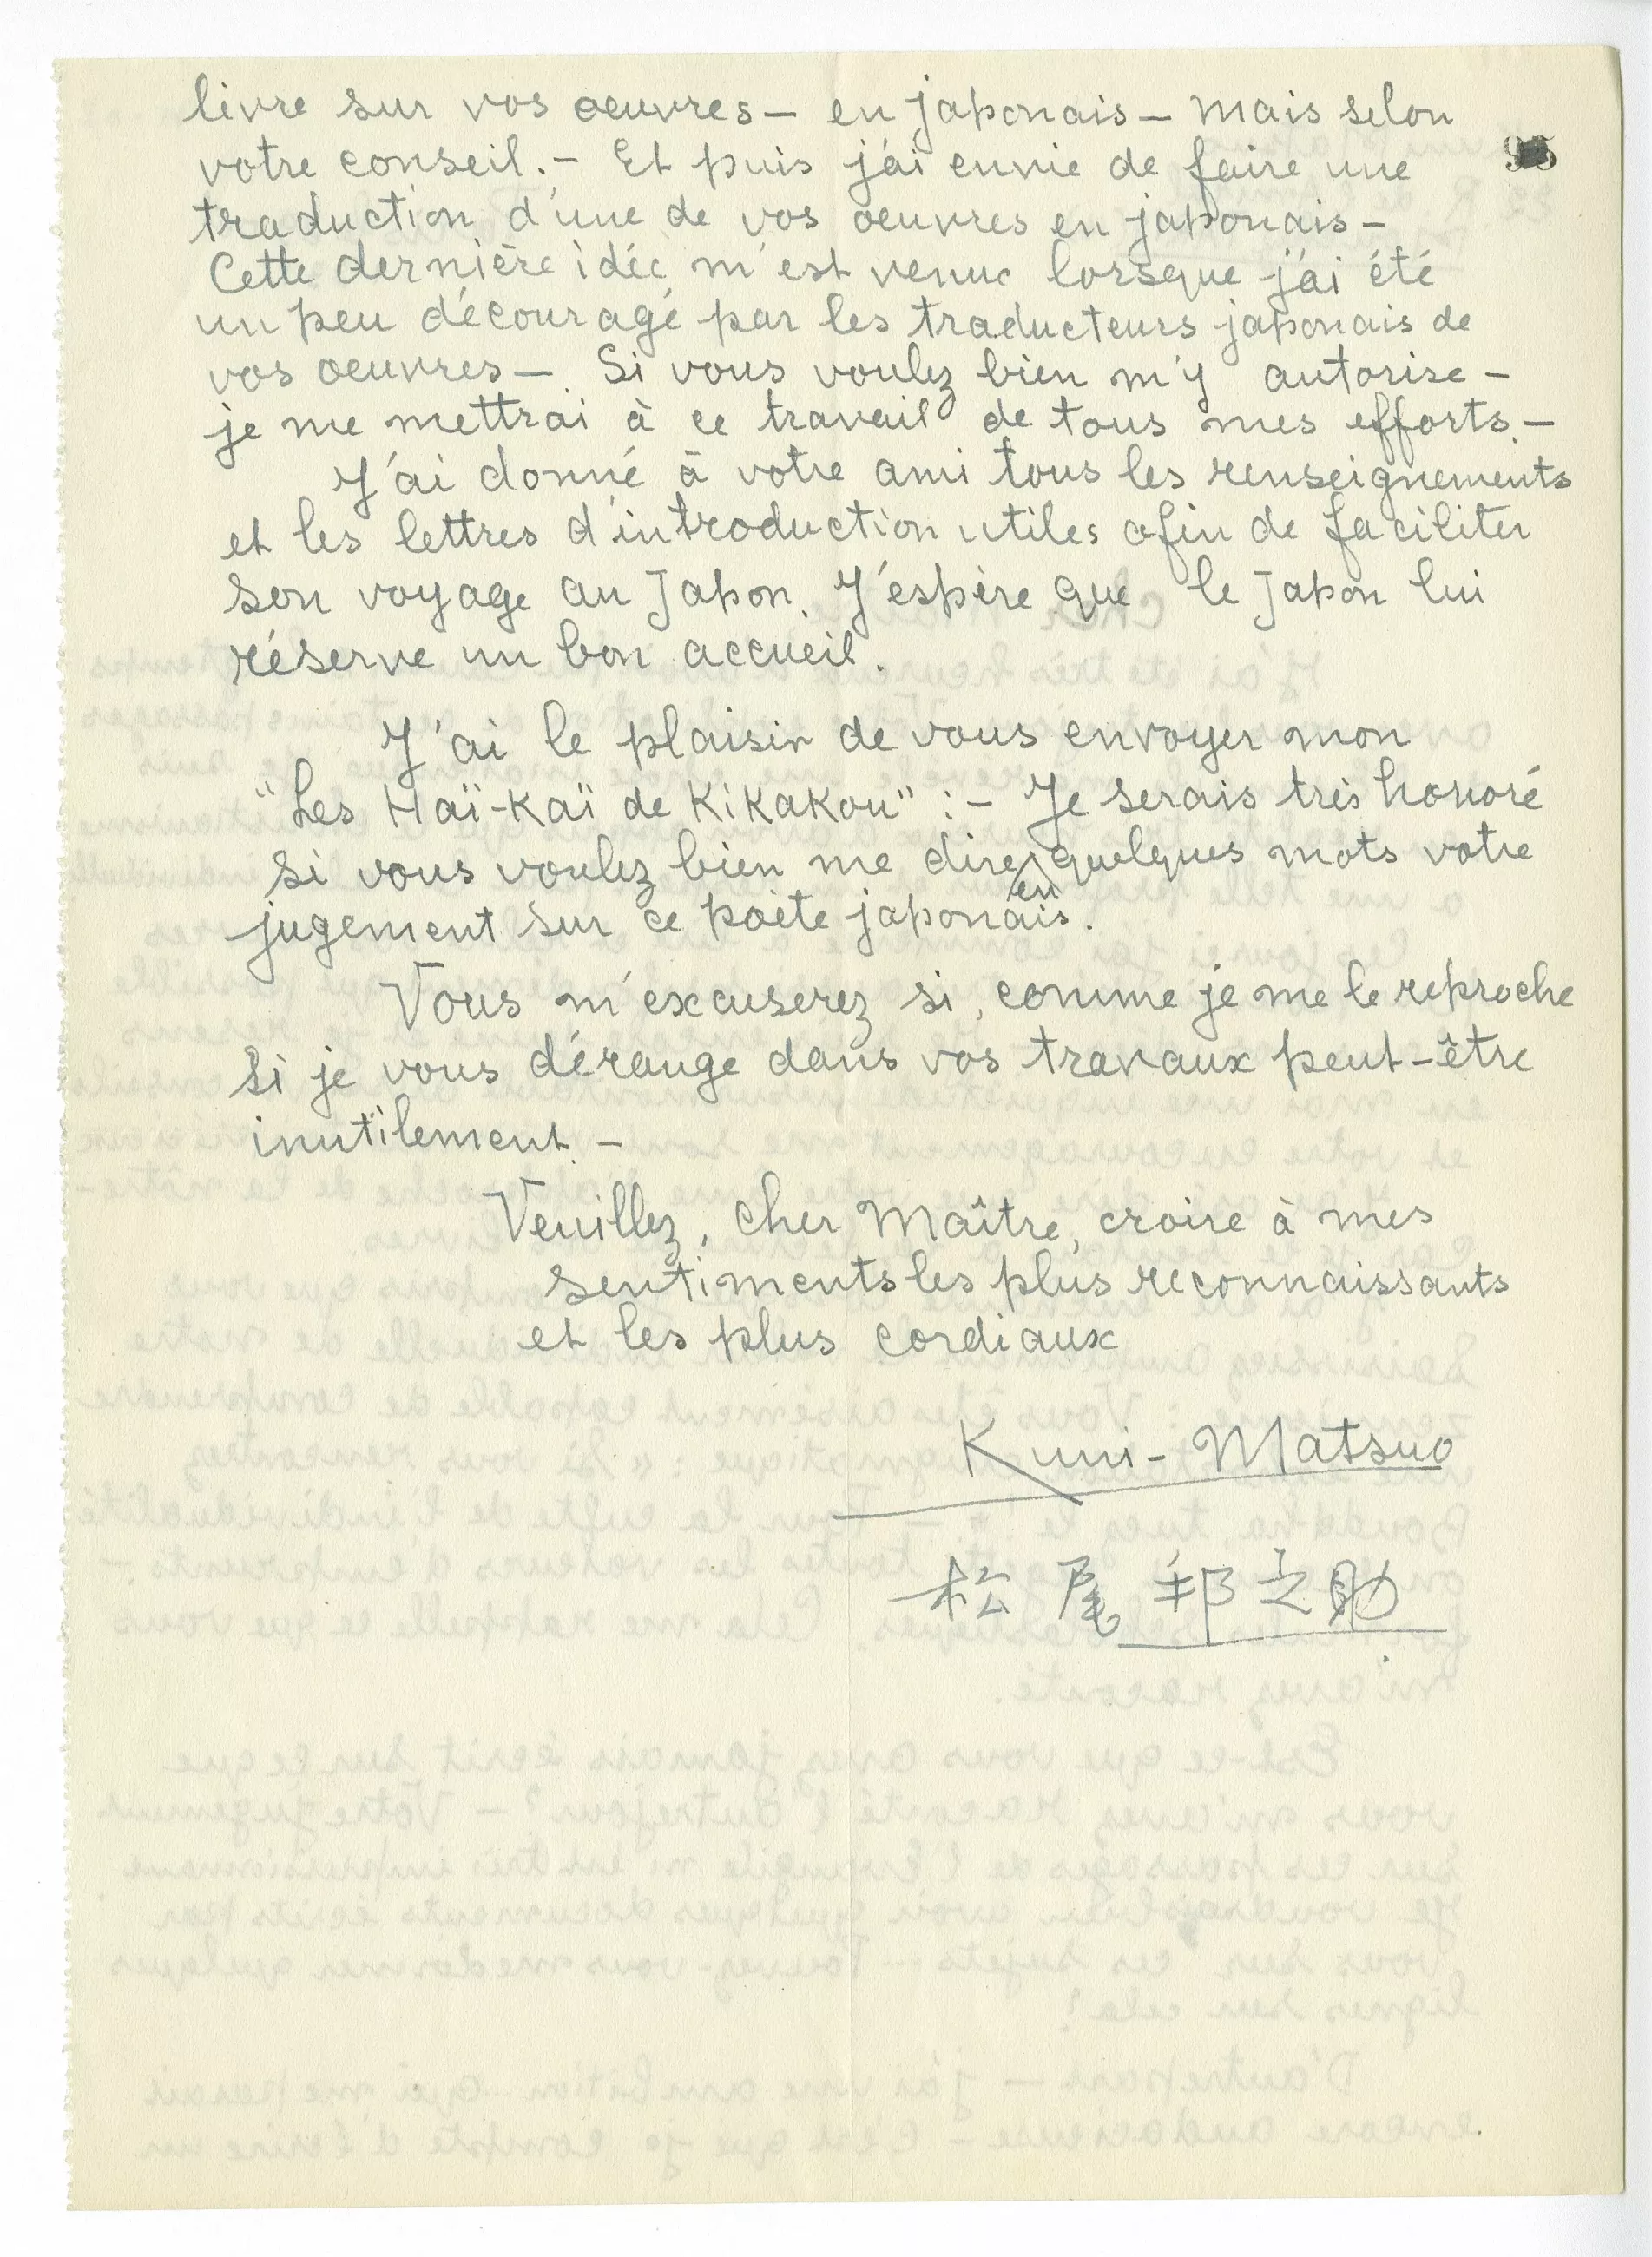 livre sur vos oeuvres — en japonais — mais selon
votre conseil. — Et puis j'ai envie de faire une
traduction d'une de vos oeuvres en japonais —
Cette dernière idée m'est venue lorsque j'ai été
un peu découragé par les traducteurs japonais de
vos oeuvres —. Si vous voulez bien m'y autorise —
je me mettrai à ce travail de tous mes efforts. —
J'ai donné à votre ami tous les renseignements
et les lettres d'introduction utiles afin de faciliter
son voyage au Japon. J'espère que le Japon lui
réserve un bon accueil.
J'ai le plaisir de vous envoyer mon
"Les Haï-Kaï de Kikakou" : — Je serais très honoré
si vous voulez bien me dire en quelques mots votre
jugement sur ce poète japonais.
Vous m'excuserez si, comme je me le reproche
si je vous dérange dans vos travaux peut-être
inutilement. —
Veuillez, cher Maître, croire à mes
sentiments les plus reconnaissants
et les plus cordiaux
Kuni - Matsuo
松尾邦之助